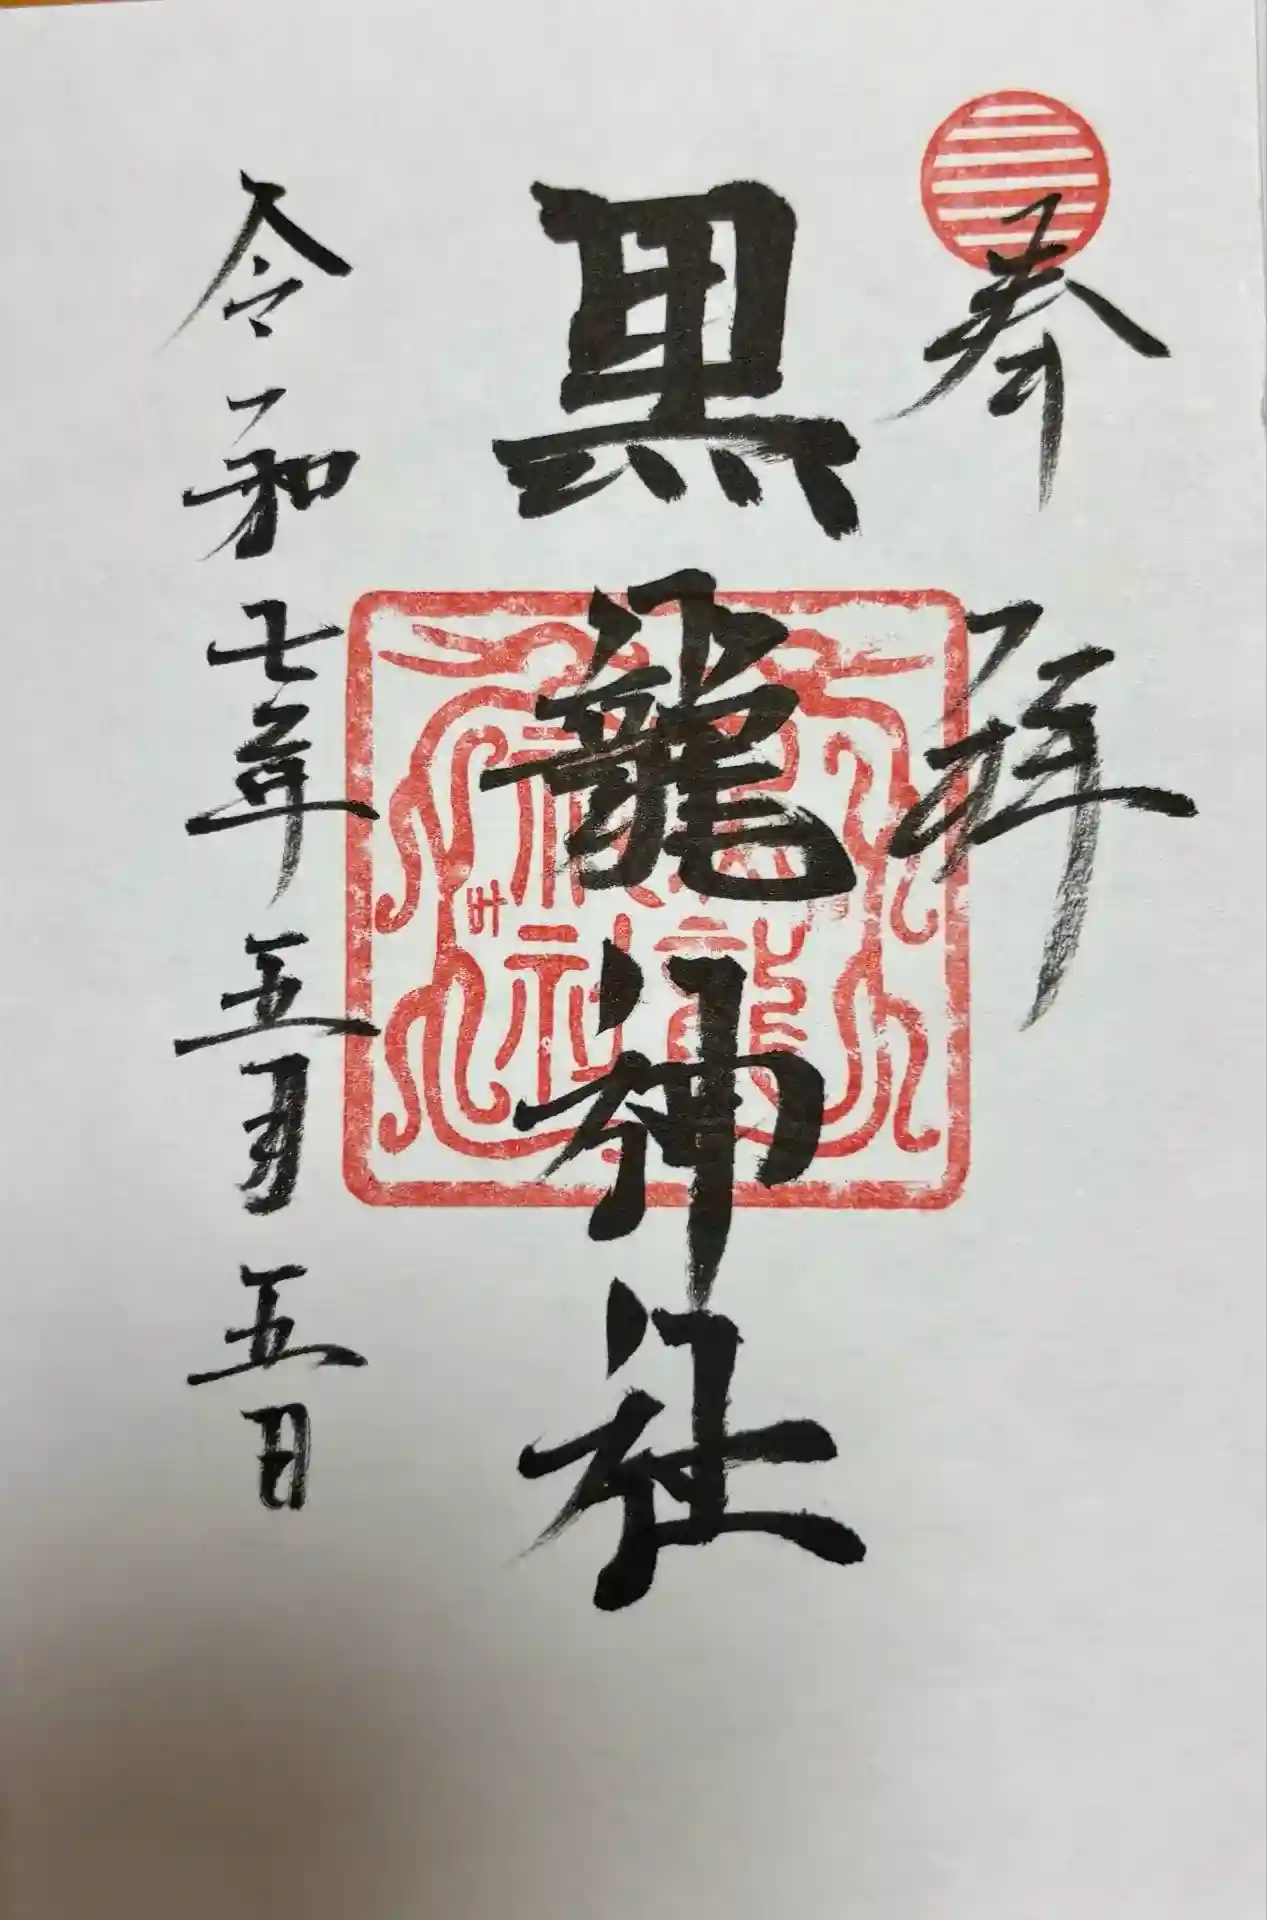 奉拝
黒龍神社
令和七年五月五日